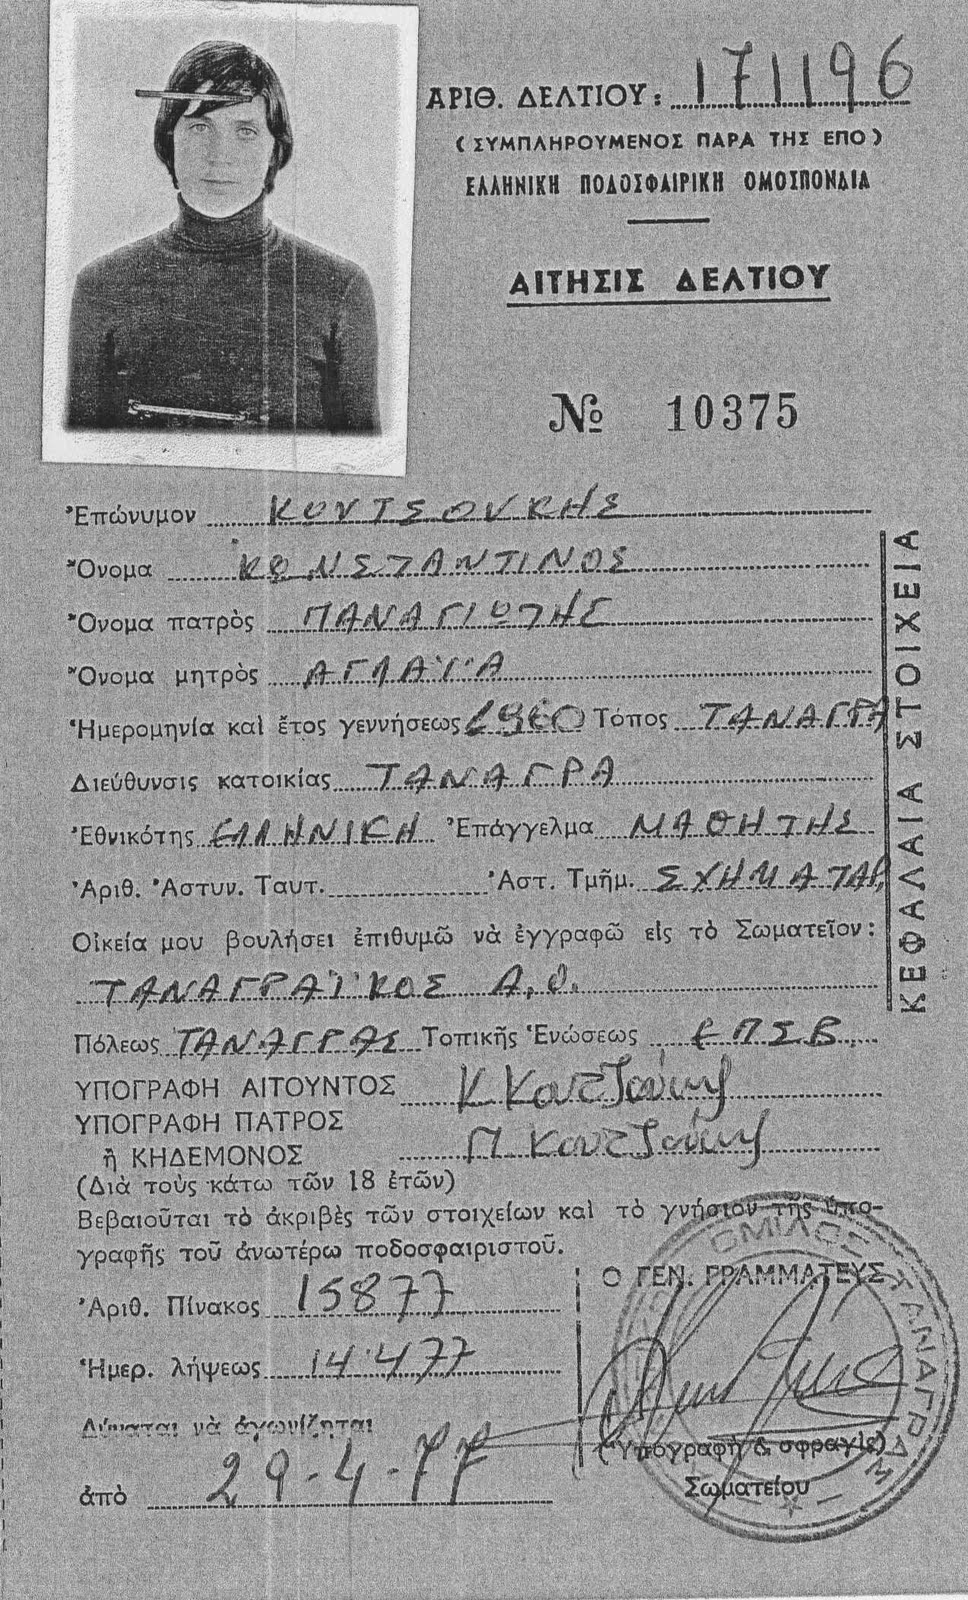 ΑΡΙΘ. ΔΕΛΤΙΟΥ: 171196
(ΣΥΜΠΛΗΡΟΥΜΕΝΟΣ ΠΑΡΑ ΤΗΣ ΕΠΟ)
ΕΛΛΗΝΙΚΗ ΠΟΔΟΣΦΑΙΡΙΚΗ ΟΜΟΣΠΟΝΔΙΑ
ΑΙΤΗΣΙΣ ΔΕΛΤΙΟΥ
№ 10375
Ἐπώνυμον ΚΟΥΤΣΟΥΚΗΣ
Ὄνομα ΚΩΝΣΤΑΝΤΙΝΟΣ
Ὄνομα πατρὸς ΠΑΝΑΓΙΩΤΗΣ
Ὄνομα μητρὸς ΑΓΛΑΪΑ
Ἡμερομηνία καὶ ἔτος γεννήσεως 1960 Τόπος ΤΑΝΑΓΡΑ
Διεύθυνσις κατοικίας ΤΑΝΑΓΡΑ
Ἐθνικότης ΕΛΛΗΝΙΚΗ Ἐπάγγελμα ΜΑΘΗΤΗΣ
Ἀριθ. Ἀστυν. Ταυτ. Ἀστ. Τμῆμ. ΣΧΗΜΑΤΑΡ.
Οἰκεία μου βουλήσει ἐπιθυμῶ νὰ ἐγγραφῶ εἰς τὸ Σωματεῖον:
ΤΑΝΑΓΡΑΪΚΟΣ Α.Ο.
Πόλεως ΤΑΝΑΓΡΑΣ Τοπικῆς Ἑνώσεως ΕΠΣΒ.
ΥΠΟΓΡΑΦΗ ΑΙΤΟΥΝΤΟΣ Κ Κουτσούκης
ΥΠΟΓΡΑΦΗ ΠΑΤΡΟΣ
ἢ ΚΗΔΕΜΟΝΟΣ Π Κουτσούκης
(Διὰ τοὺς κάτω τῶν 18 ἐτῶν)
Βεβαιοῦται τὸ ἀκριβὲς τῶν στοιχείων καὶ τὸ γνήσιον τῆς ὑπο-
γραφῆς τοῦ ἀνωτέρω ποδοσφαιριστοῦ.
Ο ΓΕΝ. ΓΡΑΜΜΑΤΕΥΣ
Ἀριθ. Πίνακος 15877
Ἡμερ. λήψεως 14.4.77
Δύναται νὰ ἀγωνίζηται
ἀπὸ 29-4-77
(Ὑπογραφὴ & σφραγὶς)
Σωματείου
ΟΜΙΛΟΣ ΤΑΝΑΓΡΑΣ
ΚΕΦΑΛΑΙΑ ΣΤΟΙΧΕΙΑ